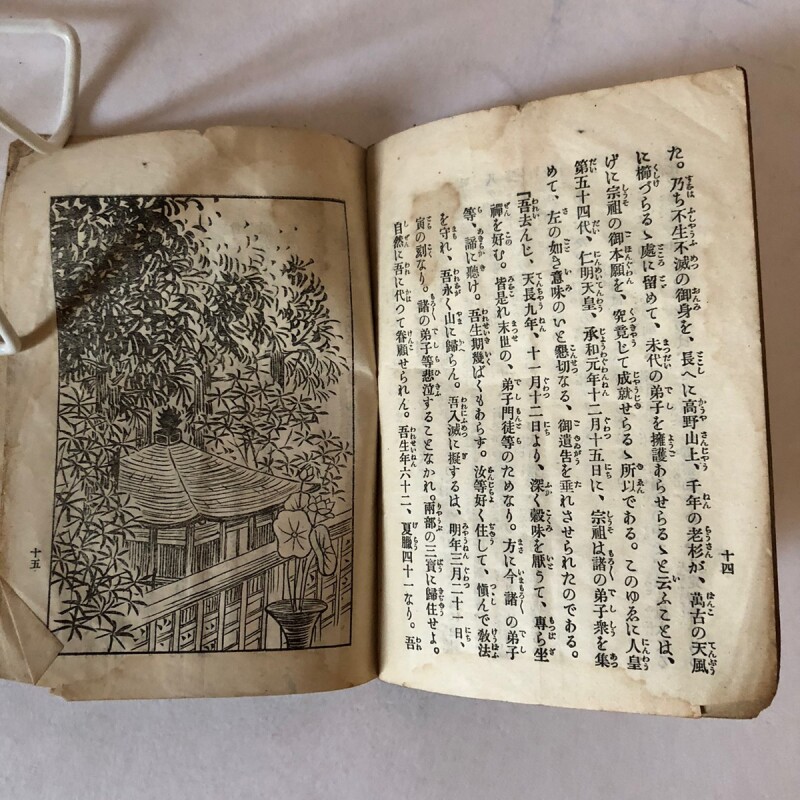 十四
た。乃ち不生不滅の御身を、長へに高野山上、千年の老杉が、萬古の天風
に櫛づらるゝ處に留めて、末代の弟子を擁護あらせらるゝと云ふことは、
げに宗祖の御本願を、究竟じて成就せらるゝ所以である。このゆゑに人皇
第五十四代、仁明天皇、承和元年十二月十五日に、宗祖は諸の弟子衆を集
めて、左の如き意味のいと懇切なる、御遺告を垂れさせられたのである。
『吾去んじ、天長九年、十一月十二日より、深く穀味を厭うて、專ら坐
禪を好む。皆是れ末世の、弟子門徒等のためなり。方に今諸の弟子
等、諦に聽け。吾生期幾ばくもあらず。汝等好く住して、愼んで敎法
を守れ、吾永く山に歸らん。吾入滅に擬するは、明年三月二十一日、
寅の刻なり。諸の弟子等悲泣することなかれ。兩部の三寳に歸住せよ。
自然に吾に代つて眷顧せられん。吾生年六十二、夏臘四十一なり。吾
十五